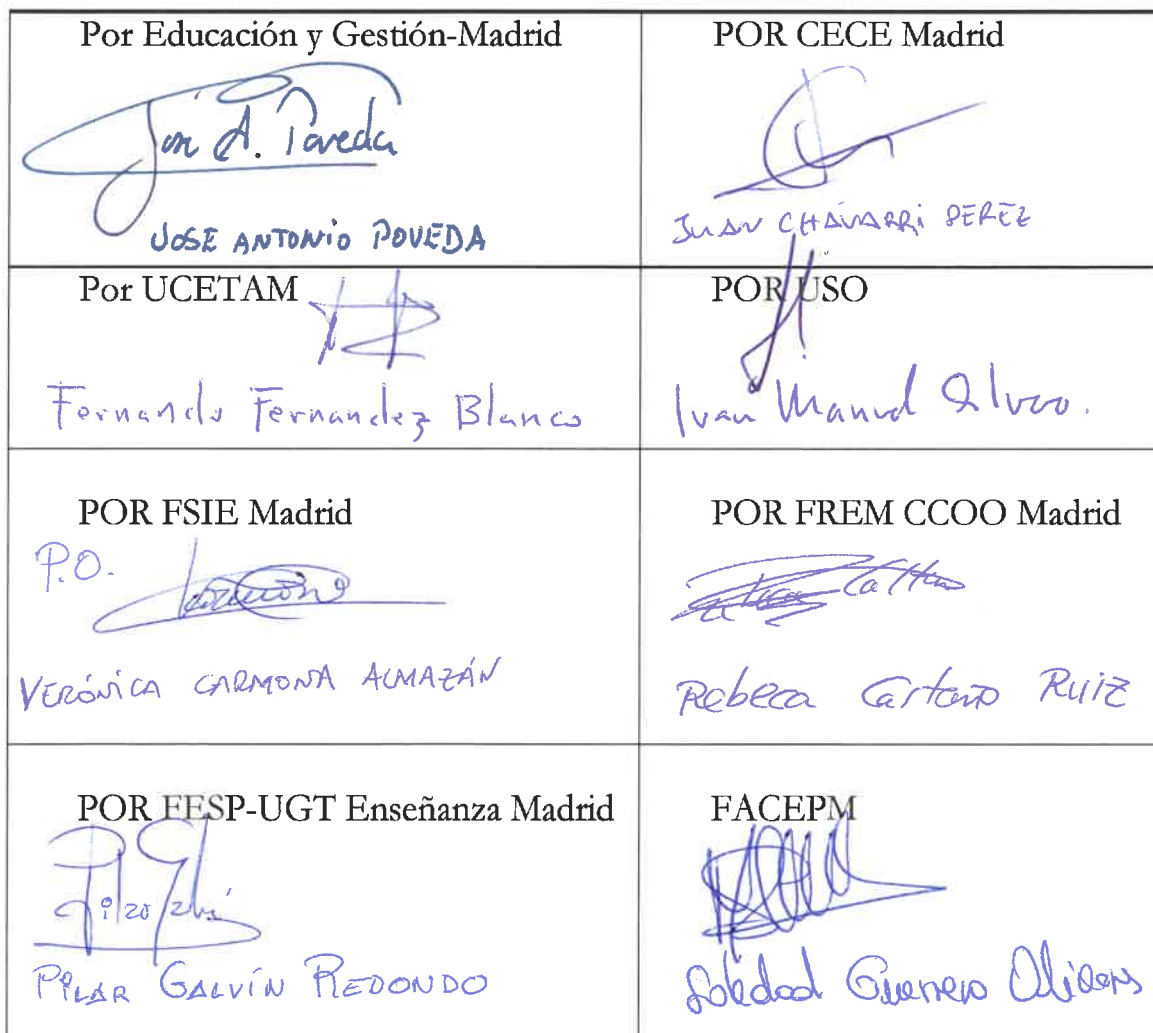 Por Educación y Gestión-Madrid
José A. Poveda
JOSE ANTONIO POVEDA
POR CECE Madrid
JUAN CHÁVARRI PEREZ
Por UCETAM
Fernando Fernandez Blanco
POR USO
Ivan Manuel
POR FSIE Madrid
P.O.
VERÓNICA CARMONA ALMAZÁN
POR FREM CCOO Madrid
Rebeca Ruiz
POR FESP-UGT Enseñanza Madrid
PILAR GALVÍN REDONDO
FACEPM
Soledad Guerrero